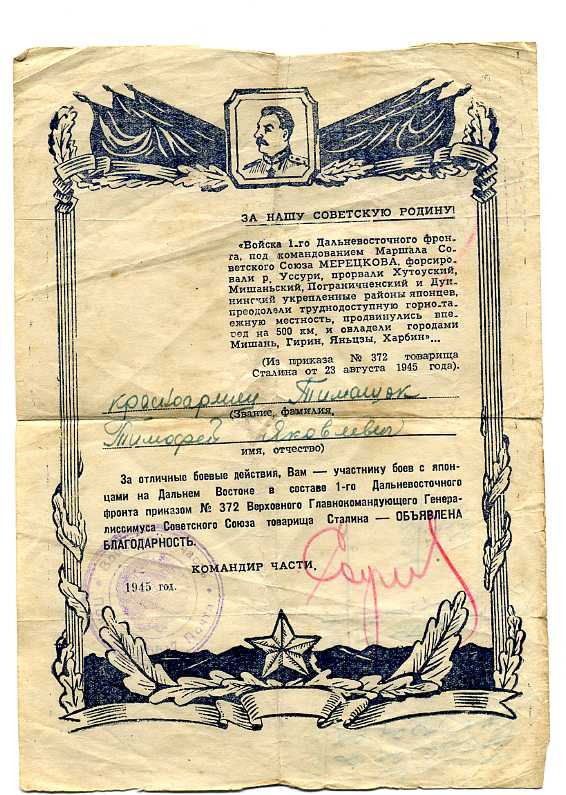 ЗА НАШУ СОВЕТСКУЮ РОДИНУ!
«Войска 1-го Дальневосточного фрон-
та, под командованием Маршала Со-
ветского Союза МЕРЕЦКОВА, форсиро-
вали р. Уссури, прорвали Хутоуский,
Мишаньский, Пограничненский и Дун-
нингчий укрепленные районы японцев,
преодолели труднодоступную горно-та-
ежную местность, продвинулись впе-
ред на 500 км. и овладели городами
Мишань, Гирин, Яньцзы, Харбин»...
(Из приказа № 372 товарища
Сталина от 23 августа 1945 года).
красноармеец Тимощук
(Звание, фамилия,
Тимофей Яковлевич
имя, отчество)
За отличные боевые действия, Вам — участнику боев с япон-
цами на Дальнем Востоке в составе 1-го Дальневосточного
фронта приказом № 372 Верховного Главнокомандующего Генера-
лиссимуса Советского Союза товарища Сталина — ОБЪЯВЛЕНА
БЛАГОДАРНОСТЬ.
КОМАНДИР ЧАСТИ.
1945 год.